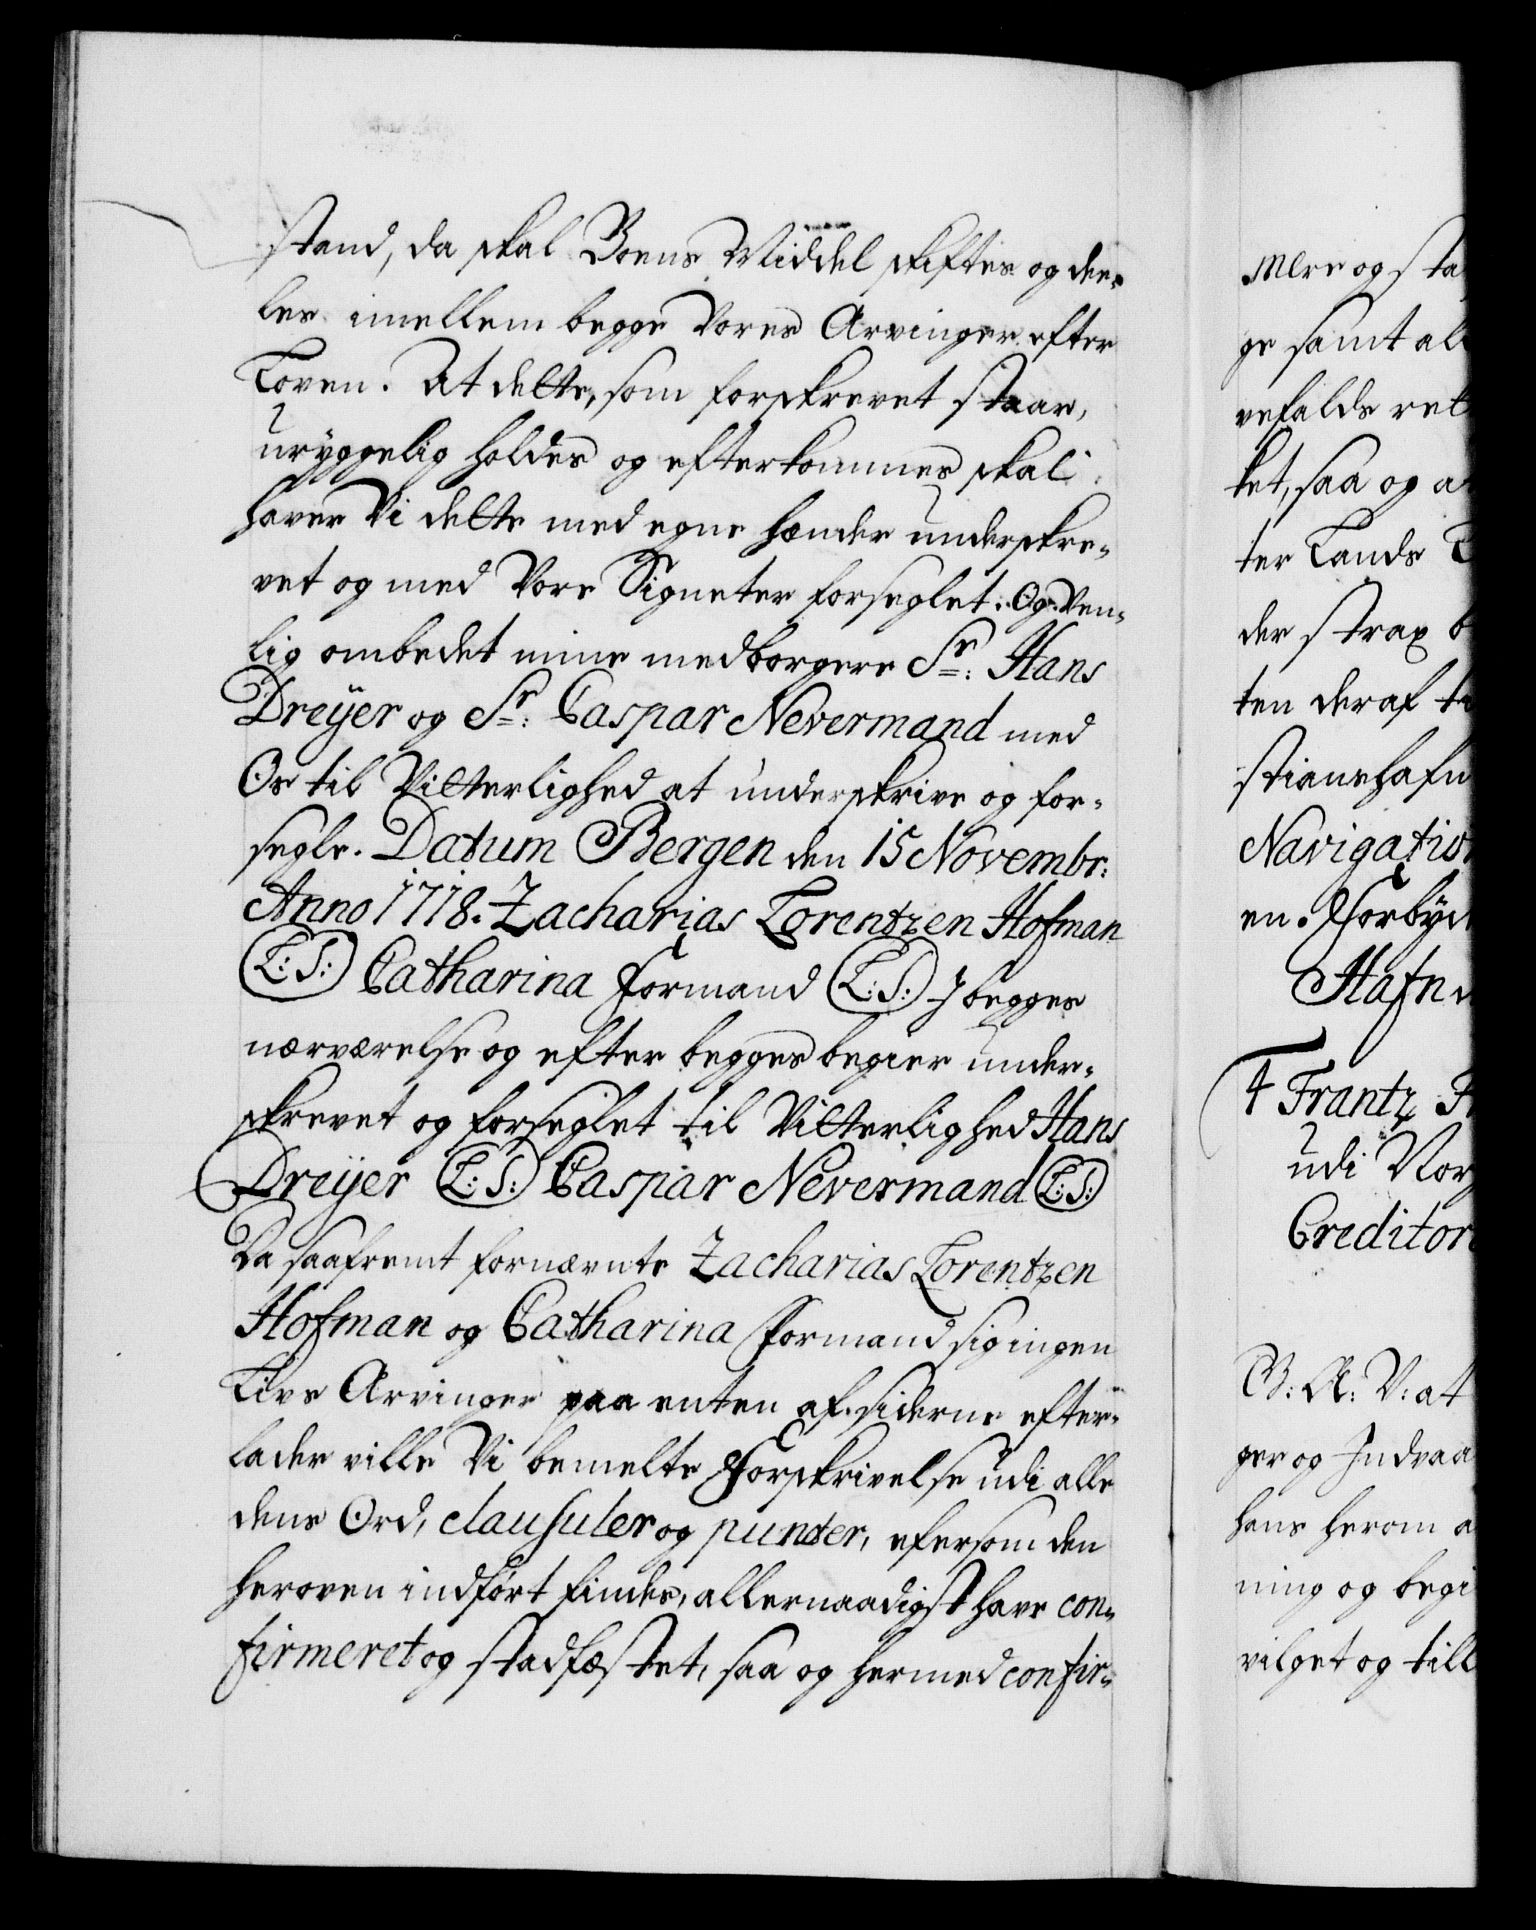 stand, da skal Boens Middel skiftes og dee-
les imellem begge Vores Arvinger efter
Loven. At dette, som forskrevet staar,
uryggelig holdes og efterkommes skal
haver Vi dette med egne hænder underskre-
vet og med Vore Signeter forseglet. Og Ven-
lig ombedet mine medborgere Sr: Hans
Dreÿer og Sr: Caspar Nevermand med
Os til Vitterlighed at underskrive og for-
segle. Datum Bergen den 15 Novembr:
Anno 1718. Zacharias Lorentzen Hofman
(L:S:) Catharina Formand (L:S:) J begges
nærværelse og efter begges begier under-
skrevet og forseglet til Vitterlighed Hans
Dreÿer (L:S:) Caspar Nevermand (L:S:)
Da saafremt fornævnte Zacharias Lorentzen
Hofman og Catharina Formand sig ingen
Livs Arvinger paa enten af siderne efter-
lader ville Vi bemelte Forskrivelse udi alle
dens Ord, clausuler og puncter, efersom den
heroven indført findes, allernaadigst have con-
firmeret og stadfæstet, saa og hermed confir-
mere og sta
ge samt al
vefalds ret
ket, saa og a
ter Lands
der strax b
ten deraf
stianshafn
Navigatio
en. Forbyd
Hafn
4 Frantz
udi Nor
Creditor
G: A: V: at
ger og Indvaa
hans herom a
ning og begi
vilget og till